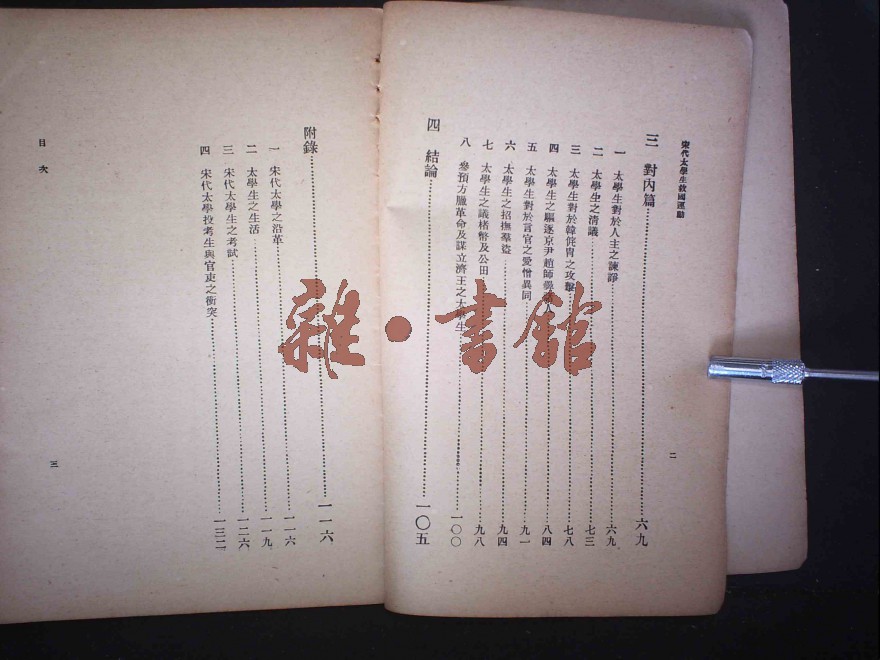 宋代太學生救國運動
二
三 對內篇 六九
一 太學生對於人主之諫諍 六九
二 太學生之清議 七三
三 太學生對於韓侂冑之攻擊 七八
四 太學生之驅逐京尹趙師 八四
五 太學生對於言官之愛憎異同 九一
六 太學生之招撫羣盜 九四
七 太學生之議楮幣及公田 九八
八 參預方臘革命及謀立濟王之太學生 一〇〇
四 結論 一〇五
附錄 一一六
一 宋代太學之沿革 一一六
二 太學生之生活 一一九
三 宋代太學生之考試 一二六
四 宋代太學投考生與官吏之衝突 一三二
目次
三
雜·書館